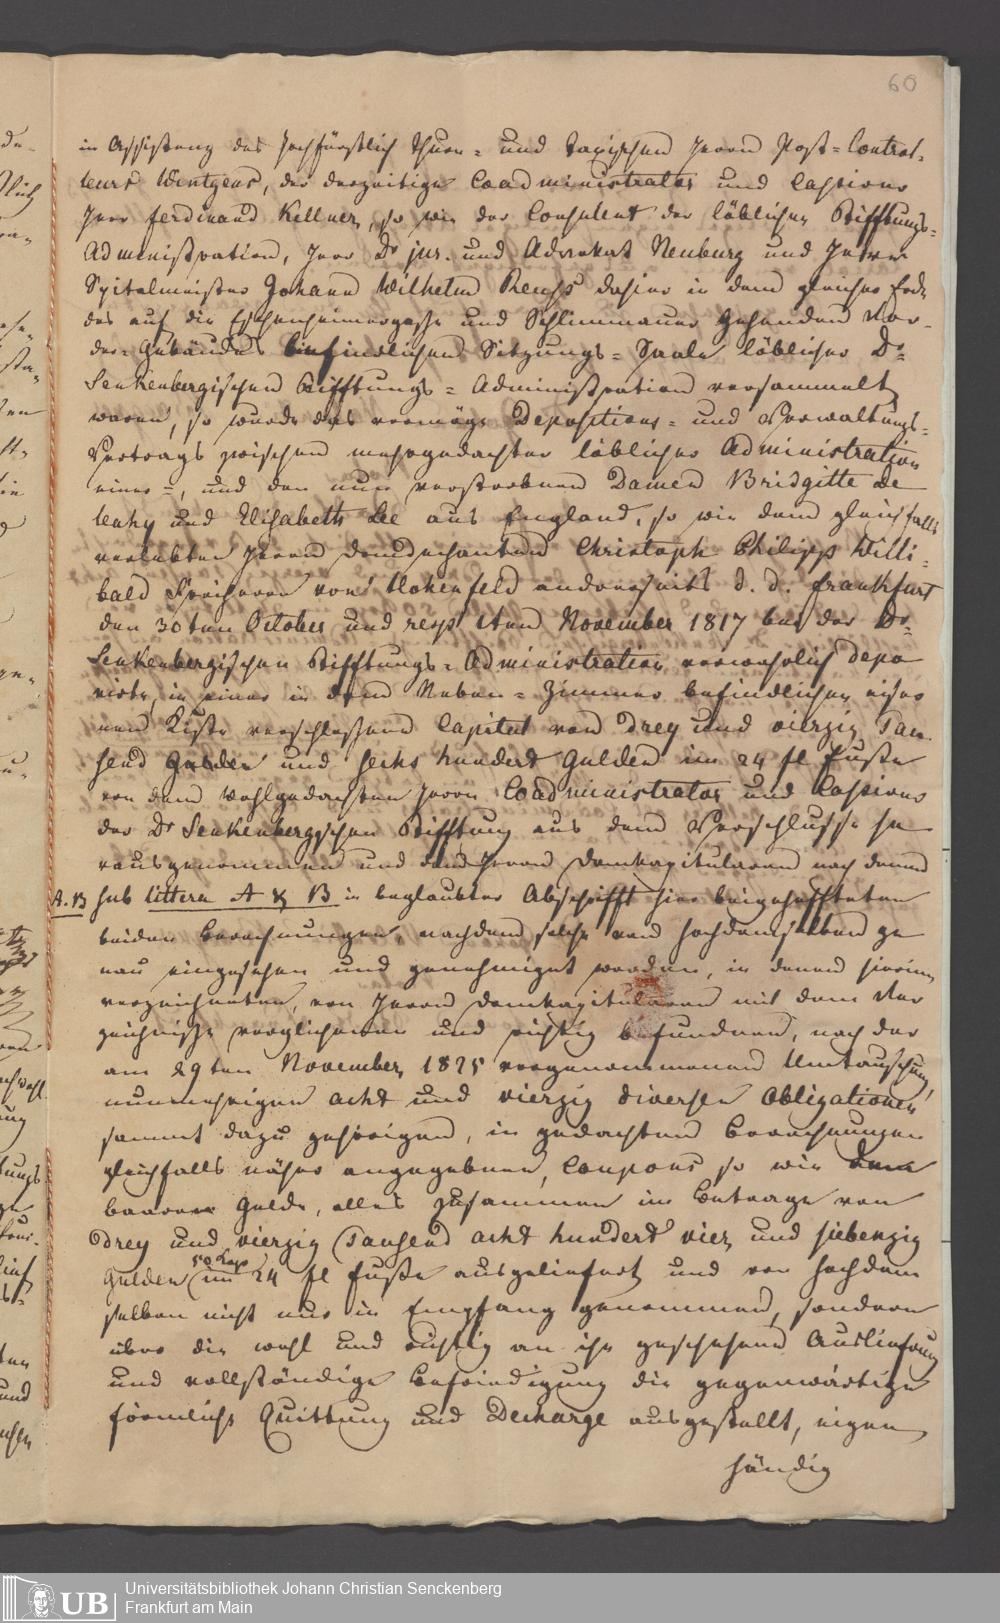 60
in Assistenz des Hochfürstlich Thurn- und Taxischen Herrn Post-Control-
leurs Wintgens, der derzeitige Coadministrator und Cassierer
Herr Ferdinand Kellner, so wie der Consulent der löblichen Stifftungs-
Administration, Herr Dr jur. und Advokat Neuburg und Herr
Spitalmeister Johann Wilhelm Reuss dahier in dem gleicher Erde
des auf die Eschenheimergasse und Schlimmauer gehenden Vor-
der-Gebäudes befindlichen Sitzungs-Saale löblicher Dr
Senkenbergischen Stifftungs-Administration versammelt
waren, so wurde das vermöge Depositions- und Verwaltungs-
Vertrags zwischen mehrgedachter löblicher Administration
einer-, und den nun verstorbenen Damen Bridgitte de
Leahy und Elisabeth Lee aus England, so wie dem gleichfalls
verlebten Herrn Domdechanten Christoph Philipp Willi-
bald Freiherrn von Hohenfeld anderseits d. d. Frankfurt
den 30ten October und resp 1ten November 1817 bei der Dr
Senkenbergischen Stifftungs-Administration verwahrlich depo
nirte, in einer in dem Neben-Zimmer befindlichen eiser
nen Kiste verschlossene Capital von Drey und vierzig Tau
send Gulden und sechs hundert Gulden im 24 fl Fusse
von dem wohlgedachten Herrn Coadministrator und Cassierer
der Dr Senkenbergischen Stifftung aus dem Verschlusse he
rausgenommen und dem Herrn Domkapitularen nach denen
A. B sub littera A & B in beglaubter Abschrifft hier beigehefteten
beiden Berechnungen, nachdem solche von hochdemselben ge
nau eingesehen und genehmiget worden, in denen hierinn
verzeichneten, von Herrn Domkapitularen mit dem Ver
zeichnisse verglichenen und richtig befundenen, nach der
am 29ten November 1825 vorgenommenen Umtauschung,
nunmehrigen acht und vierzig diverse Obligationen
sammt dazu gehörigen, in gedachten Berechnungen
gleichfalls näher angegebenen, Coupons so wie dem
baaren Gelde, alles zusammen im Betrage von
Drey und vierzig Tausend acht hundert vier und siebenzig
Gulden 50 Kx im 24 fl Fusse ausgeliefert und von hochdem
selben nicht nur in Empfang genommen, sondern
über die wohl und richtig an ihn geschehene Auslieferung
und vollständige Befriedigung die gegenwärtige
förmliche Quittung und Decharge ausgestellt, eigen
händig
UB
Universitätsbibliothek Johann Christian Senckenberg
Frankfurt am Main